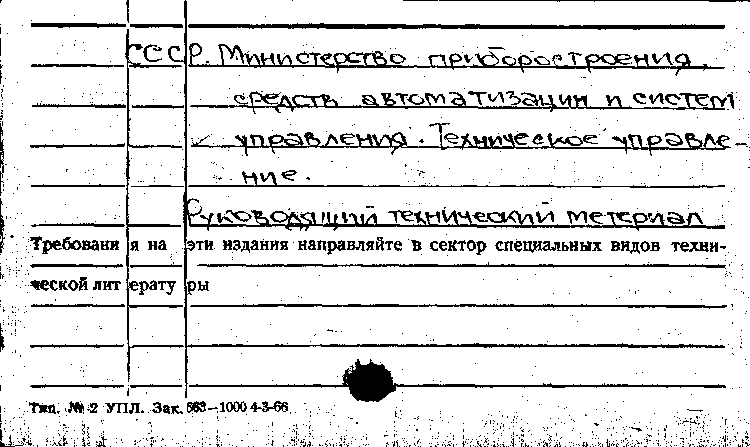 СССР. Министерство приборостроения,
средств автоматизации и систем
управления. Техническое управле-
ние.
Руководящий технический метериал
Требования на эти издания направляйте в сектор специальных видов техни-
ческой литературы
Тип. № 2 УПЛ. Зак. 563—1000 4-3-66